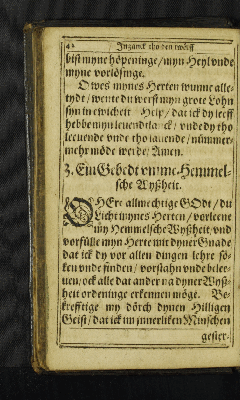 42 Inganck tho den twölff
bist myne höpeninge / myn Heyl vnde
myne vorlösinge.
O wes mynes Herten wunne alle-
tydt / wente du werst myn grote Lohn
syn in ewicheit Help / dat ick dy leeff
hebbe myn leuendt / vnde dy tho
leeuende vnde tho lauende / nümmer-
mehr möde werde / Amen.
3. Ein Gebedt vmme Hemmel-
sche Wyßheit.
O HEre allmechtige GOdt / du
Licht mynes Herten / vorleene
my Hemmelsche Wyßheit / vnd
vorfülle myn Herte mit dyner Gnade
dat ick dy vor allen dingen lehre sö-
ken vnde finden / vorstahn vnde belee-
uen / ock alle dat ander na dyner Wyß-
heit ordeninge erkennen möge. Be-
krefftige my dörch dynen Hilligen
Geist / dat ick im innerliken Minschen
gester-